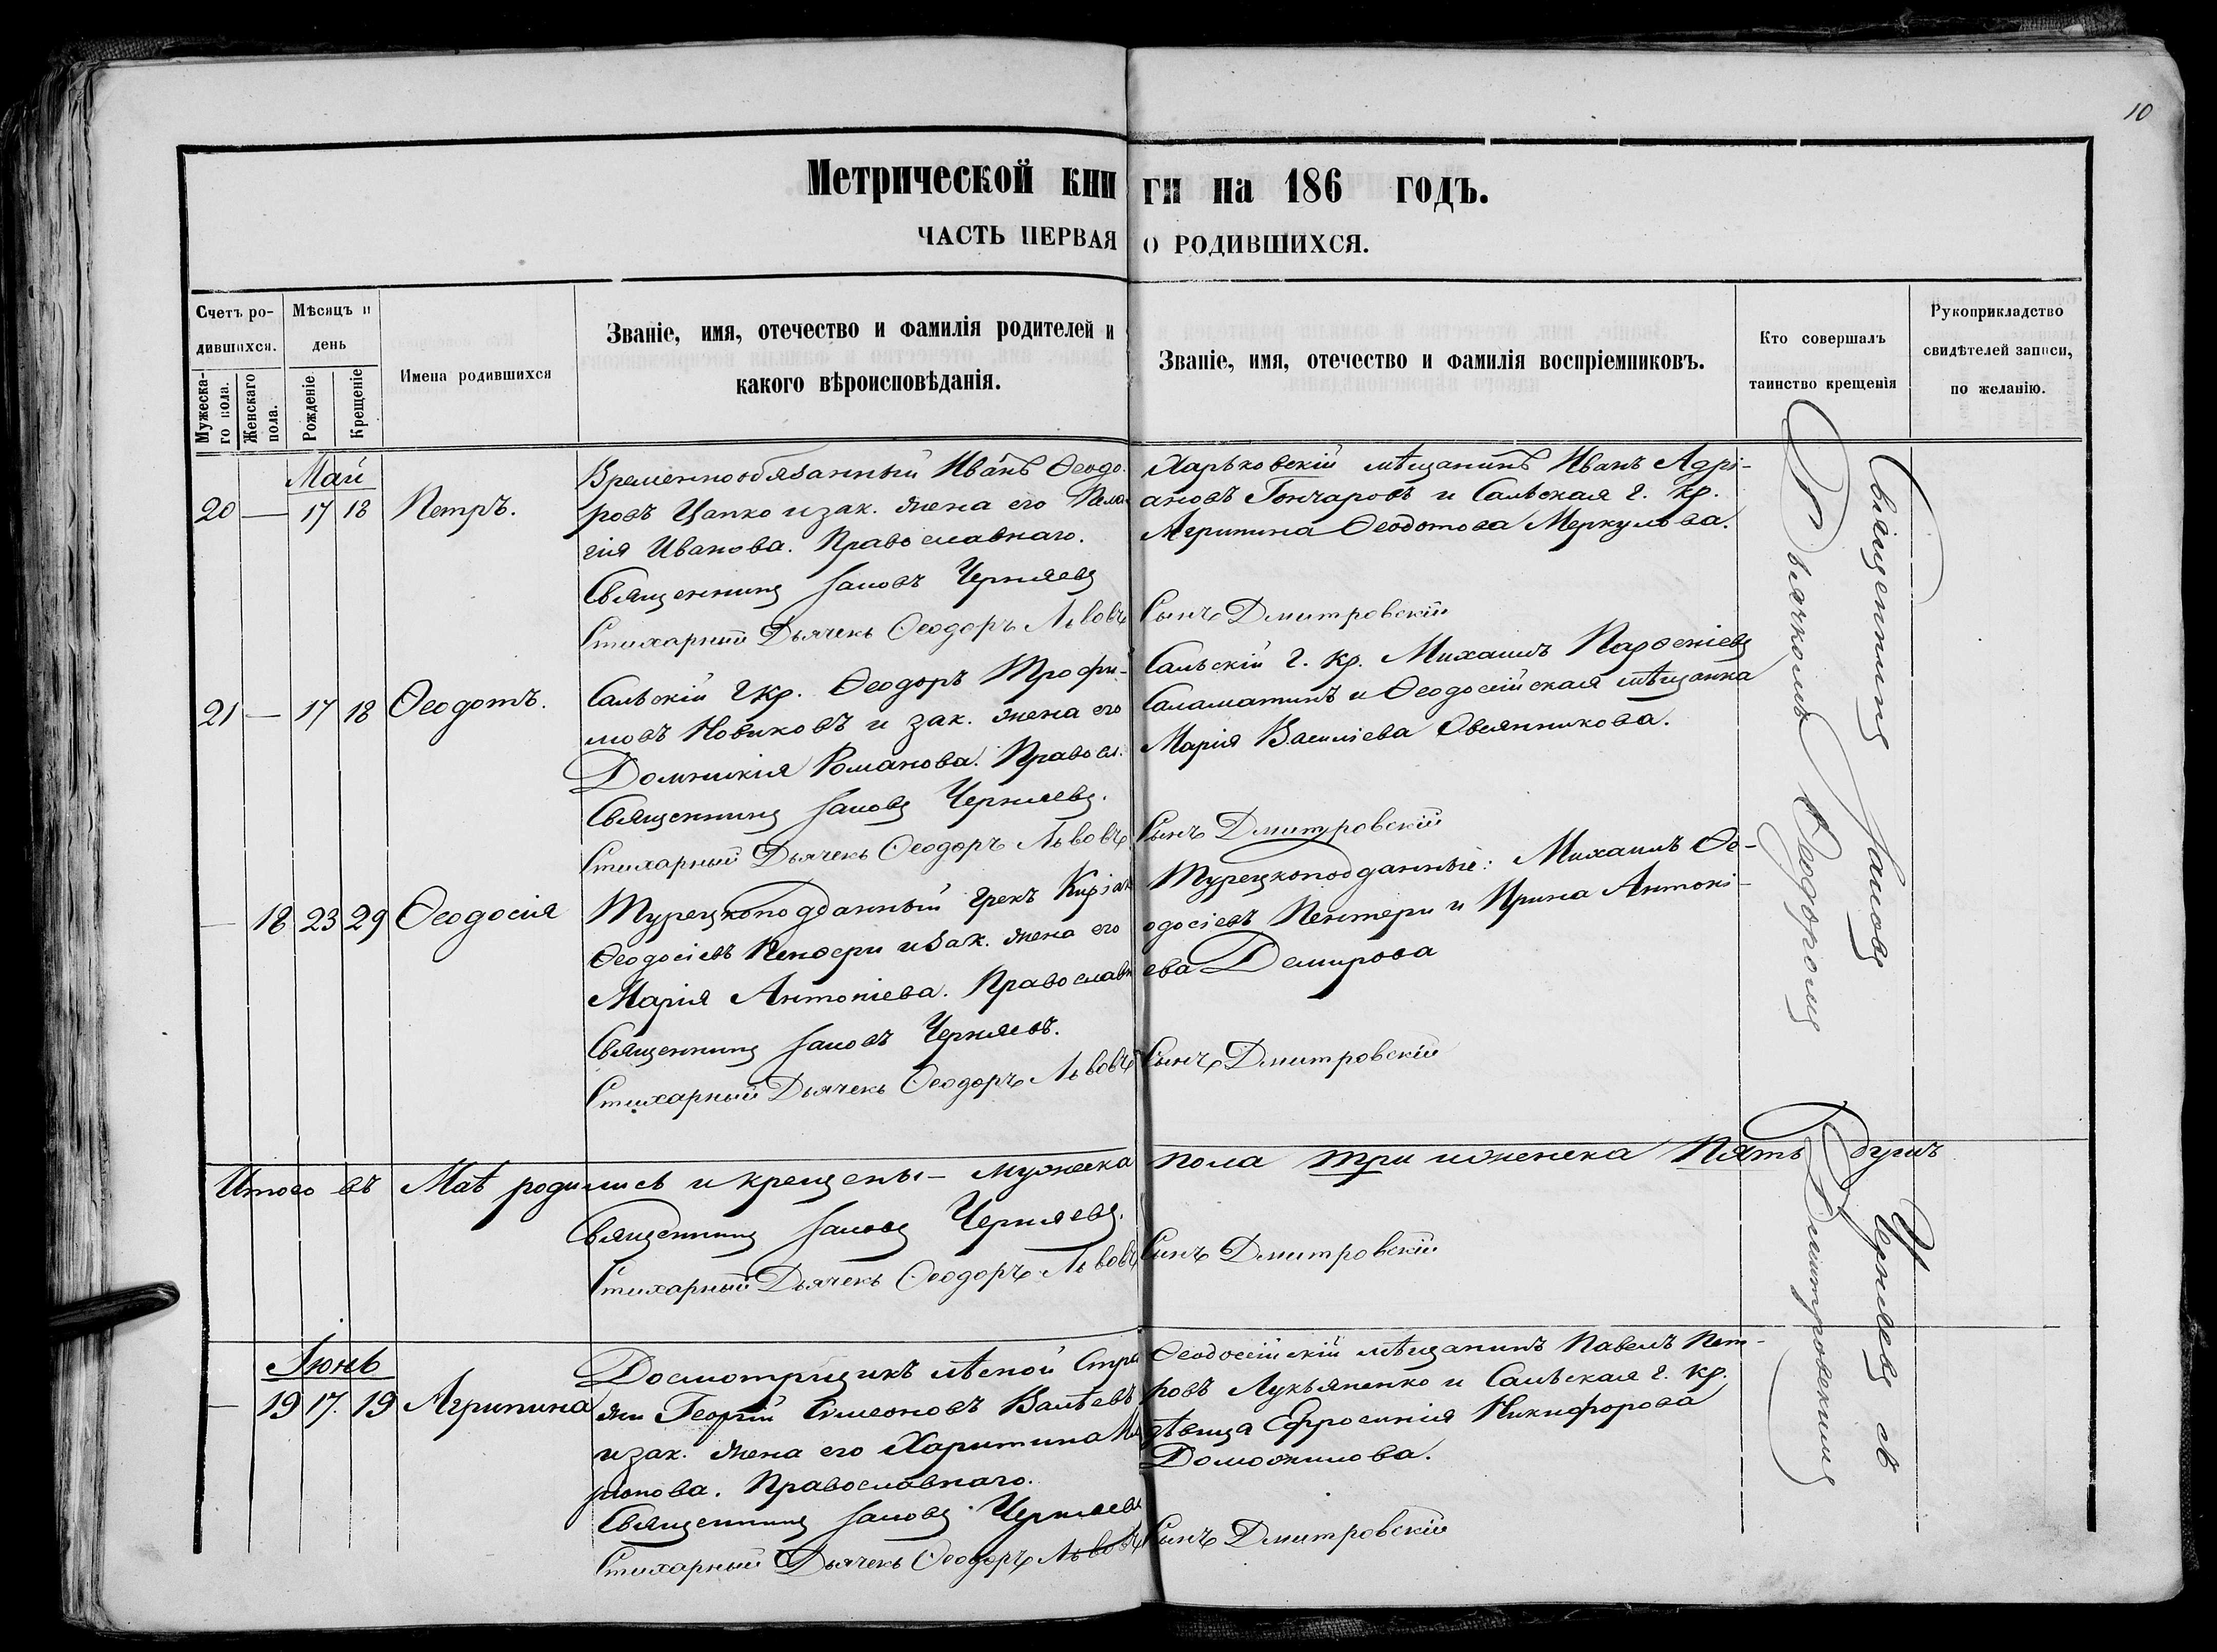 10
Метрической книги на 186 годъ.
ЧАСТЬ ПЕРВАЯ О РОДИВШИХСЯ.
Счетъ ро-
дившихся.
Мужеска-
го пола.
Женскаго
пола.
Мѣсяцъ и
день
Рожденіе
Крещеніе
Имена родившихся
Званіе, имя, отечество и фамилія родителей и
какого вѣроисповѣданія.
Званіе, имя, отечество и фамилія воспріемниковъ.
Кто совершалъ
таинство крещенія
Рукоприкладство
свидѣтелей записи,
по желанію.
Май
20 — 17 18 Петръ.
Временнообязанный Иванъ Ѳеодо-
ровъ Цапко и зак. жена его Пела
гія Иванова. Православнаго.
Священникъ Іаковъ Черняевъ
Стихарный Дьячекъ Ѳеодоръ Львовъ Сынъ Дмитровскій
Харьковскій мѣщанинъ Иванъ Адрі-
ановъ Гончаровъ и Сальская г. кр.
Агрипина Ѳеодотова Меркулова.
21 — 17 18 Ѳеодотъ.
Сальскій г. кр. Ѳеодоръ Трофи-
мовъ Новиковъ и зак. жена его
Домникія Романова. Правосл.
Священникъ Іаковъ Черняевъ.
Стихарный Дьячекъ Ѳеодоръ Львовъ Сынъ Дмитровскій
Сальскій г. кр. Михаилъ Парѳеніевъ
Саламатинъ и Ѳеодосійская мѣщанка
Марія Василіева Овсянникова.
— 18 23 29 Ѳеодосія
Турецкоподданный грекъ Киріак
Ѳеодосіевъ Пендери и зак. жена его
Марія Антоніева. Православн
Священникъ Іаковъ Черняевъ.
Стихарный Дьячекъ Ѳеодоръ Львовъ Сынъ Дмитровскій
Турецкоподданные: Михаилъ Ѳе-
одосіевъ Пентери и Ирина Антоні-
ева Демирова
Итого въ Маѣ родились и крещены — мужеска пола три и женска пять душъ
Священникъ Іаковъ Черняевъ.
Стихарный Дьячекъ Ѳеодоръ Львовъ Сынъ Дмитровскій
Іюнь
— 19 17. 19 Агрипина
Досмотрщикъ мѣстной Стра
жи Георгій Симеоновъ Валѣевъ
и зак. жена его Харитина
ріонова. Православнаго.
Священникъ Іаковъ Черняевъ
Стихарный Дьячекъ Ѳеодоръ Львовъ Сынъ Дмитровскій
Ѳеодосійскій мѣщанинъ Павелъ Пет-
ровъ Лукьяненко и Сальская г. кр.
дѣвица Ефросинія Никифорова
Доможилова.
Священникъ Іаковъ Черняевъ съ
Дьячкомъ Ѳеодоромъ Дмитровскимъ